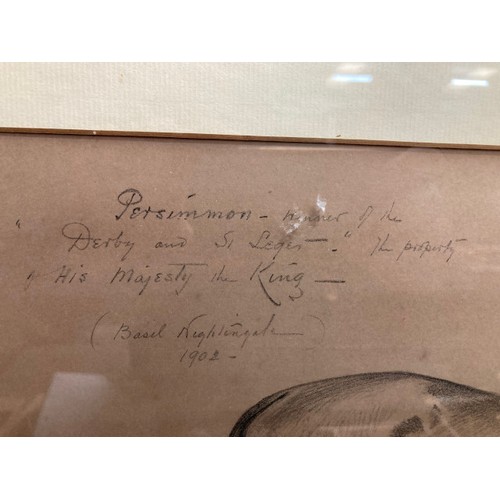 Persimmon - winner of the
" Derby and St Leger - " the property
of His Majesty the King -
( Basil Nightingale )
1902 -